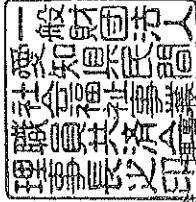 一般財団法人
愛知県民間
社会福祉事業
職員共済会
理事長之印